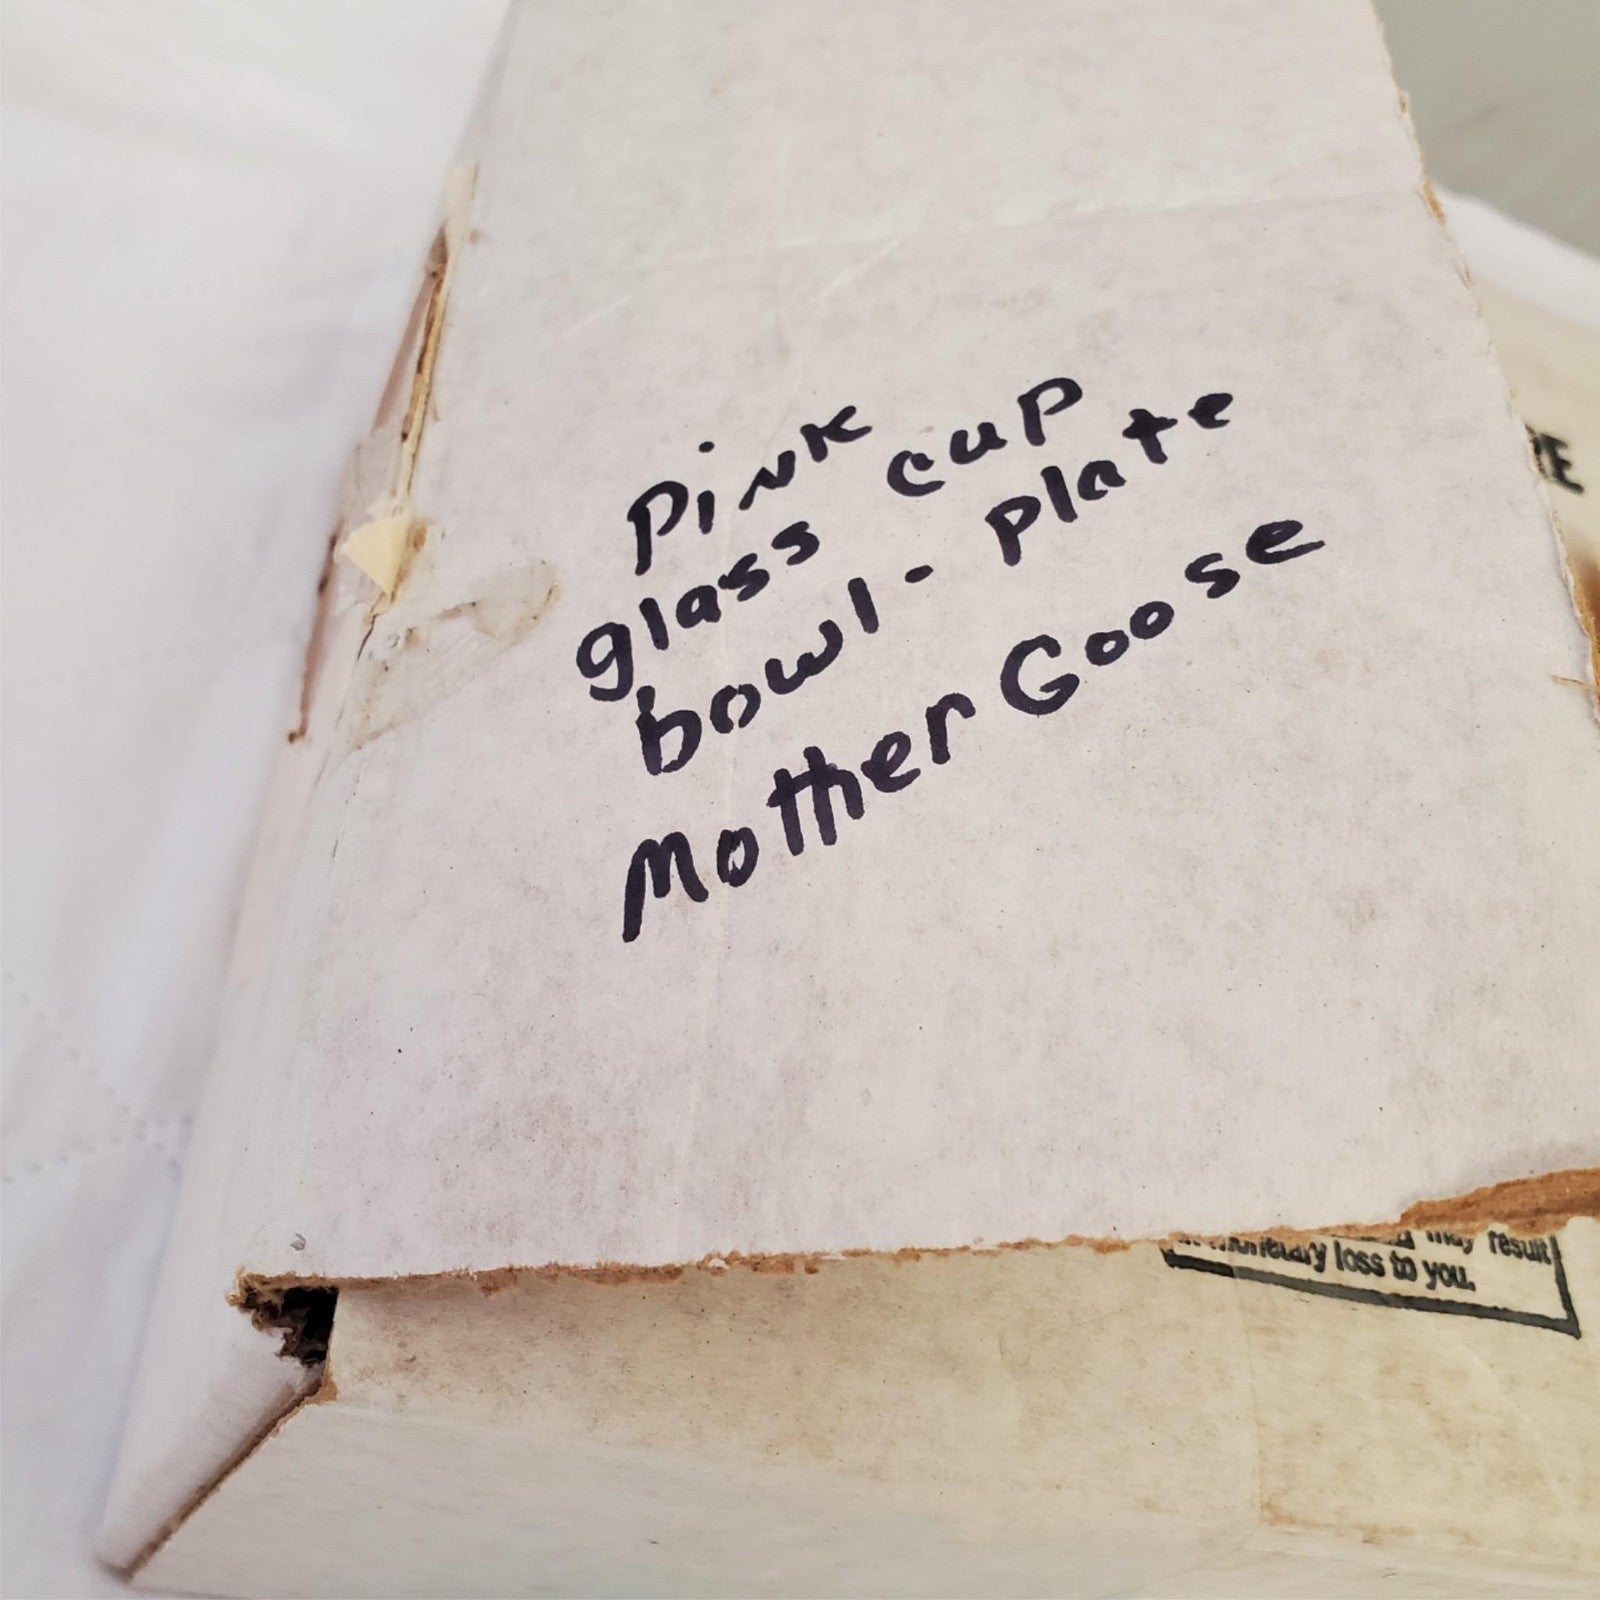 Pink
glass cup
bowl - plate
Mother Goose
may result
monetary loss to you.